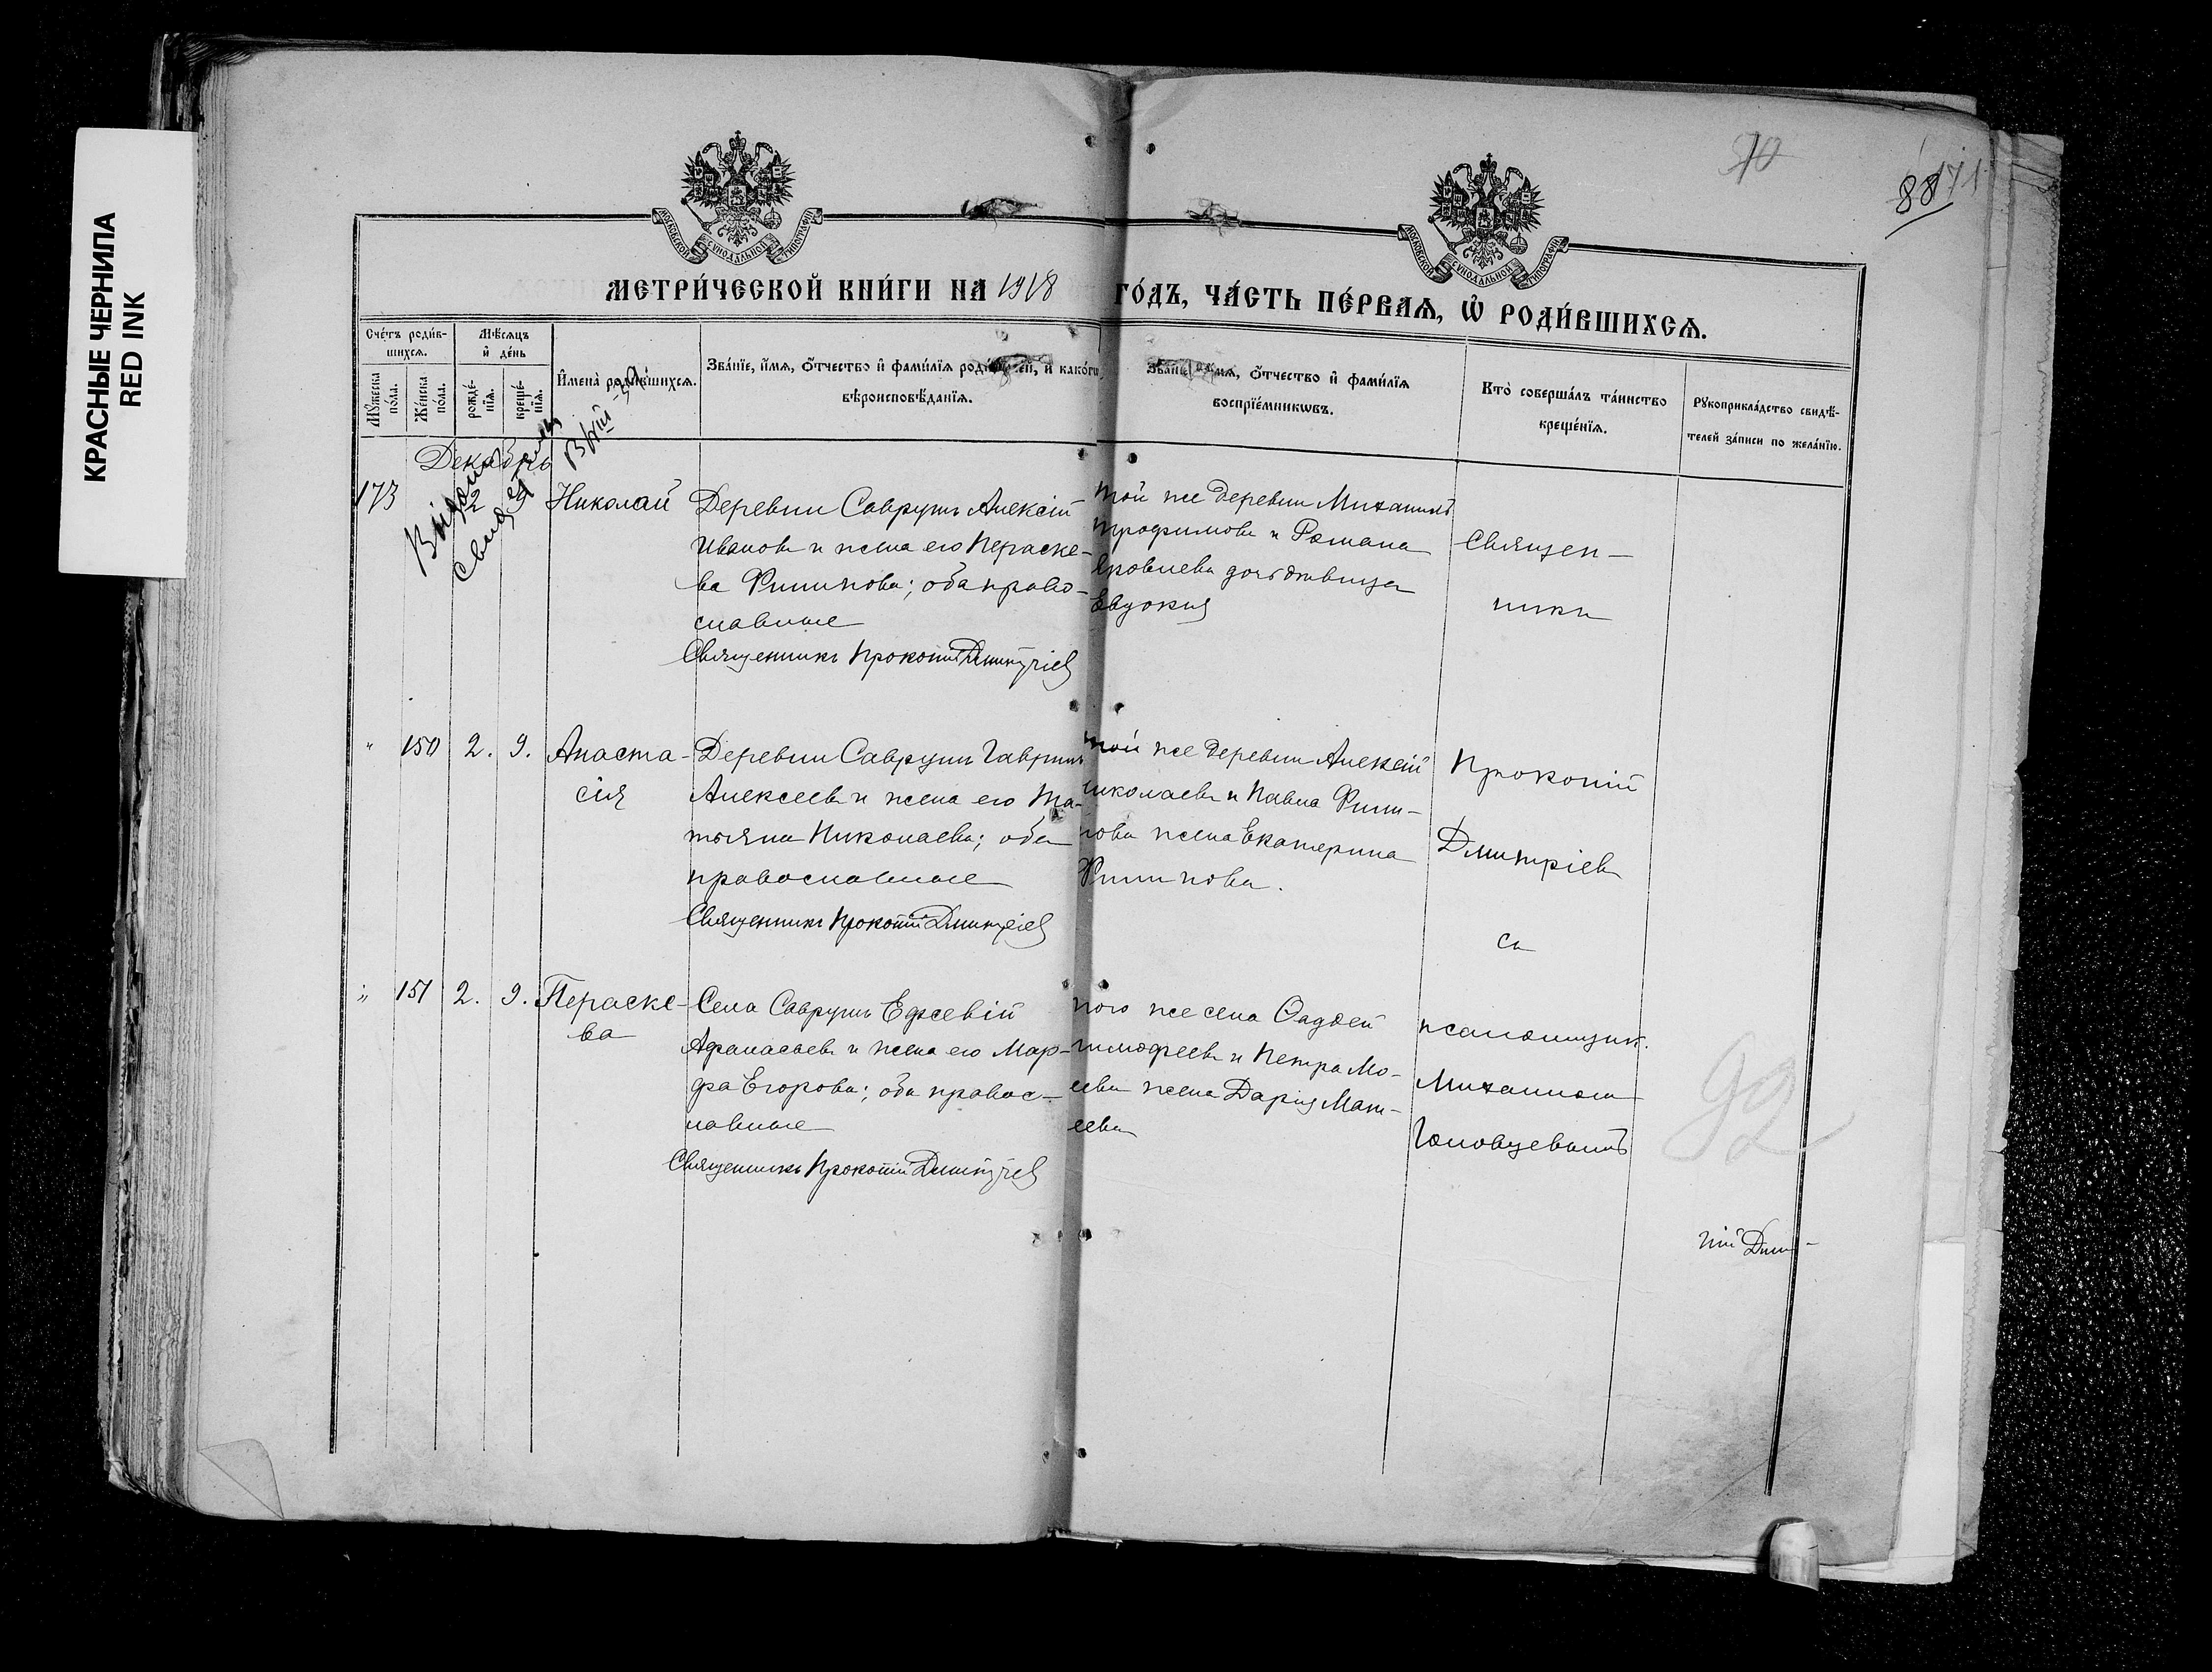 КРАСНЫЕ ЧЕРНИЛА
RED INK
70
88
171
МОСКОВСКОЙ СѴНОДАЛЬНОЙ ТИПОГРАФІИ
МОСКОВСКОЙ СѴНОДАЛЬНОЙ ТИПОГРАФІИ
МЕТРИ́ЧЕСКОЙ КНИ́ГИ НА 1918 ГО́ДЪ, ЧА́СТЬ ПЕ́РВАЯ, Ѡ҆ РОДИ́ВШИХСЯ.
Сче́тъ роди́в-
шихся.
Мꙋ́жеска по́ла.
Же́нска по́ла.
Мѣ́сяцъ
и҆ де́нь
рожде́-
нїя.
креще́-
нїя.
И҆мена̀ роди́вшихся.
Зва́нїе, и҆́мя, ѻ҆́тчество и҆ фами́лїя роди́телей, и҆ како́гѡ
вѣроисповѣ́данїя.
Зва́нїе, и҆́мя, ѻ҆́тчество и҆ фами́лїя
воспрїе́мникѡвъ.
Кто̀ соверша́лъ та́инство
креще́нїя.
Рꙋкоприкла́дство свидѣ́-
телей за́писи по жела́нїю.
Декабрь
173
2
9
Николай
Деревни Саврушъ Алексій
Ивановъ и жена его Пераске-
ва Филипова; оба право-
славные
Священникъ Прокопій Дмитріев
той же деревни Михаилъ
Трофимовъ и Романа
Яковлева дочь девица
Евдокия
Священ-
никъ
" 150 2. 9.
Анаста-
сія
Деревни Саврушъ Гавриилъ
Алексеевъ и жена его Та-
тьяна Николаева; оба
православные
Священникъ Прокопій Дмитріев
той же деревни Алексей
Николаевъ и Павла Фили-
пова жена Екатерина
Филипова.
Прокопій
Дмитріевъ
съ
" 151 2. 9.
Пераске-
ва
Села Саврушъ Евсевій
Афанасьевъ и жена его Мар-
фа Егорова; оба правос-
лавные
Священникъ Прокопій Дмитріев
того же села Фаддей
Тимофеевъ и Петра Мо-
сеева жена Дарія Мат-
еева
псаломщик.
Михаиломъ
92
пій Дми-